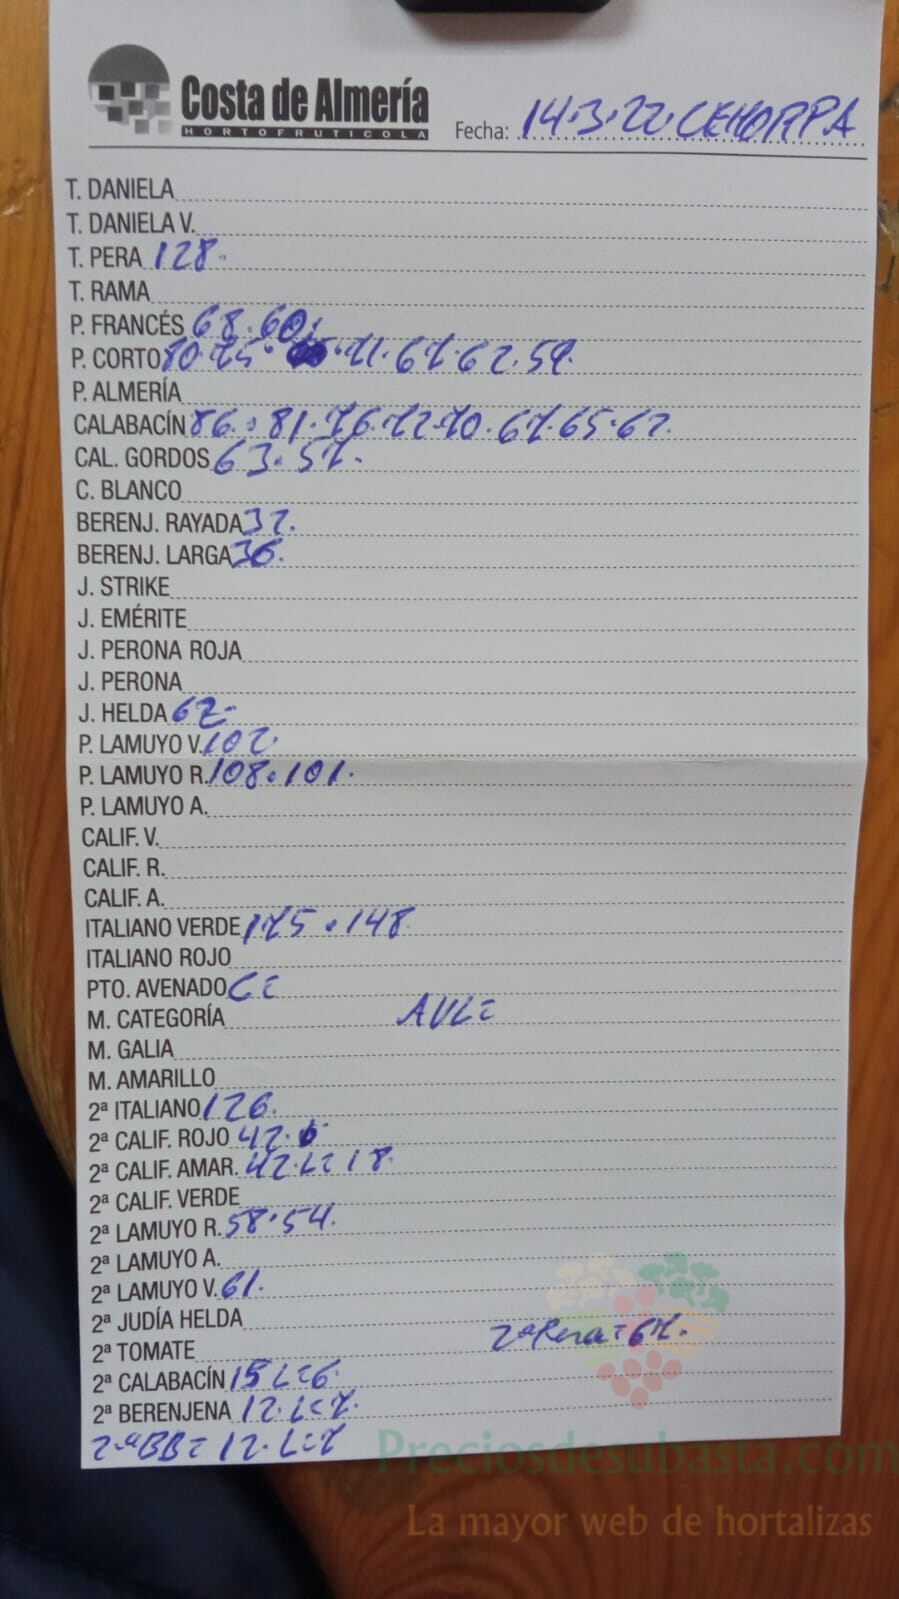 Costa de Almería
HORTOFRUTICOLA
Fecha: 14.3.22.CEHORPA
T. DANIELA
T. DANIELA V.
T. PERA 128.
T. RAMA
P. FRANCÉS 68.60.
P. CORTO 80.75. .71.67.62.59.
P. ALMERÍA
CALABACÍN 86.81.76.72.70.67.65.62.
CAL. GORDOS 63.57.
C. BLANCO
BERENJ. RAYADA 32.
BERENJ. LARGA 36.
J. STRIKE
J. EMÉRITE
J. PERONA ROJA
J. PERONA
J. HELDA 62.
P. LAMUYO V. 102
P. LAMUYO R. 108.101.
P. LAMUYO A.
CALIF. V.
CALIF. R.
CALIF. A.
ITALIANO VERDE 175.148
ITALIANO ROJO
PTO. AVENADO
M. CATEGORÍA
M. GALIA
M. AMARILLO
2ª ITALIANO 126.
2ª CALIF. ROJO 42.
2ª CALIF. AMAR. 42.L=18
2ª CALIF. VERDE
2ª LAMUYO R. 58.54.
2ª LAMUYO A.
2ª LAMUYO V. 61.
2ª JUDÍA HELDA
2ª Pera=67.
2ª TOMATE
2ª CALABACÍN 15 L=6.
2ª BERENJENA 12.L=7.
2ªBB=12.L=7
Preciosdesubasta.com
La mayor web de hortalizas